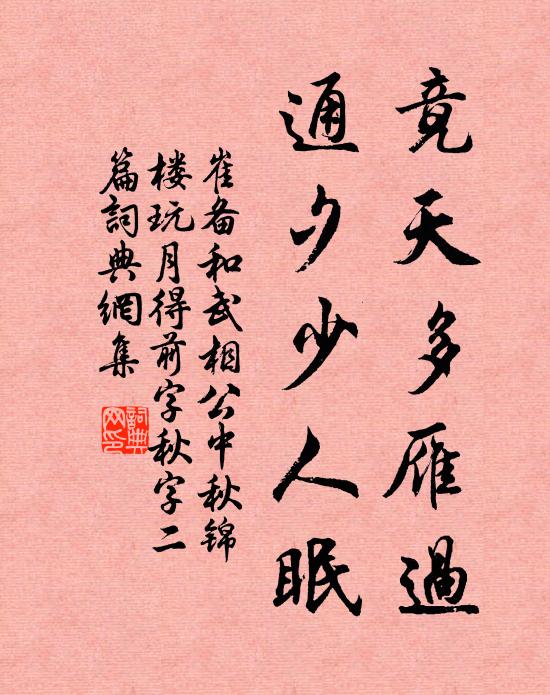 竟天多雁過
通夕少人眠
崔备和武相公中秋锦
楼玩月得前字秋字二
篇詞典網集
詞典
网印